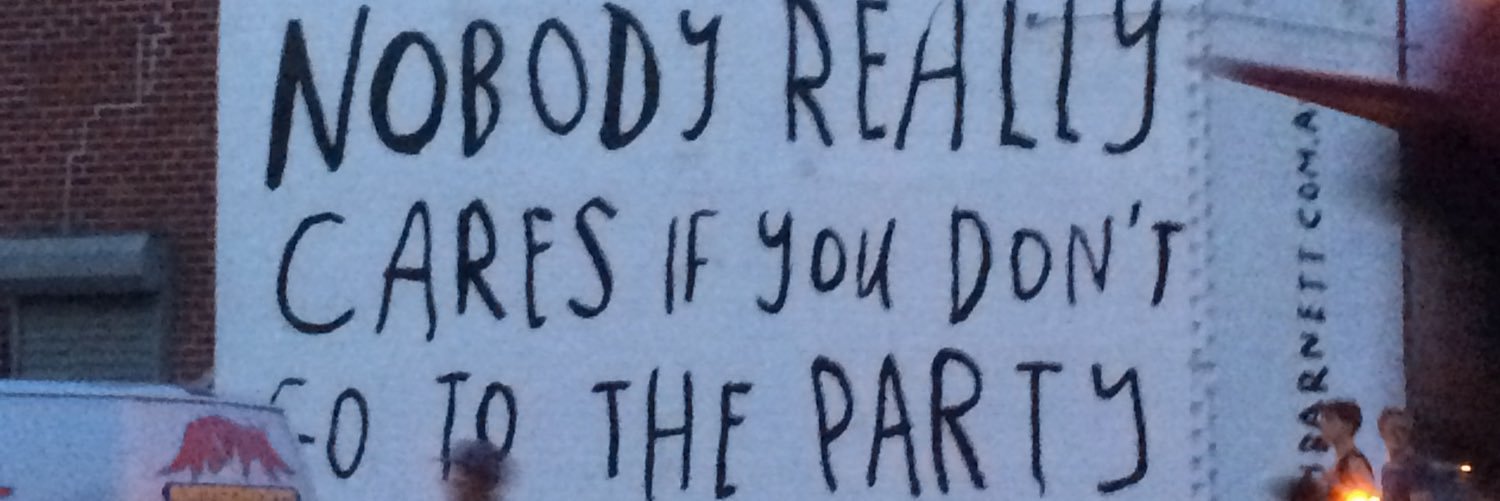 NOBODY REALLY
CARES IF YOU DON'T
GO TO THE PARTY
HBARNETT.COM.A